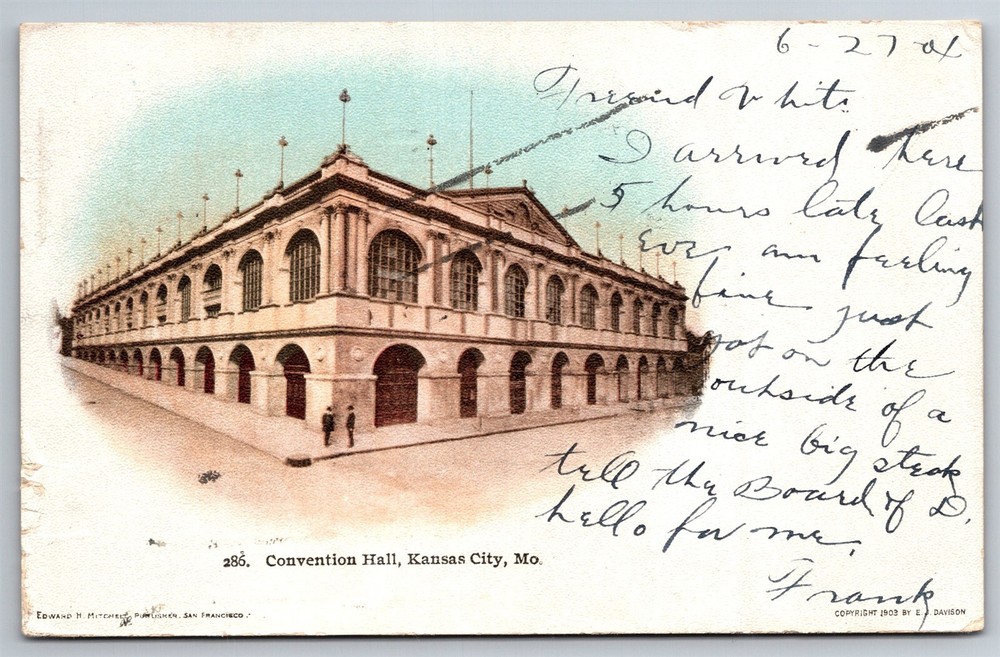 6-27-04
Friend White
I arrived here
5 hours late last
eve, am feeling
fine just
got on the
outside of a
nice big steak
tell the Board of D.
hello for me.
Frank
286. Convention Hall, Kansas City, Mo.
EDWARD H. MITCHELL, PUBLISHER, SAN FRANCISCO.
COPYRIGHT 1903 BY E. J. DAVISON